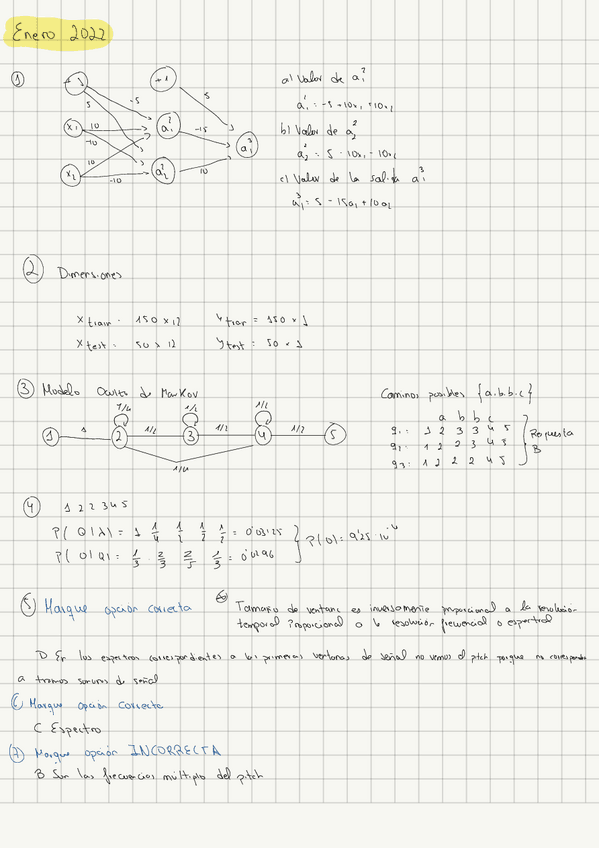 Enero 2022
①
+1
+1
5
-5
5
x₁
10
a₁²
-15
a₁³
-10
10
x₂
-10
a₂²
10
a) Valor de a₁²
a₁² = -5 + 10x₁ + 10x₂
b) Valor de a₂²
a₂² = 5 - 10x₁ - 10x₂
c) Valor de la salida a₁³
a₁³ = 5 - 15a₁ + 10a₂
② Dimensiones
X train = 150 x 12 Y train = 150 x 1
X test = 50 x 12 Y test = 50 x 1
③ Modelo Oculto de Markov
1/4 1/2 1/2
① 1 ② 1/2 ③ 1/2 ④ 1/2 ⑤
1/4
Caminos posibles {a.b.b.c}
a b b c
q₁: 1 2 3 3 4 5
q₂: 1 2 2 3 4 5
q₃: 1 2 2 2 4 5
Respuesta B
④ 1 2 2 3 4 5
P(Q|λ) = 1 1/4 1/2 1/2 1/2 = 0'03125
P(O|Q) = 1/3 · 2/3 2/5 1/3 = 0'0296
P(O) = 9'25·10⁻⁴
⑤ Marque opción correcta
Tamaño de ventana es inversamente proporcional a la resolución
temporal proporcional a la resolución frecuencial o espectral
D En los espectros correspondientes a las primeras ventanas de señal no vemos el pitch porque no corresponde
a tramos sonoros de señal
⑥ Marque opción correcta
C Espectro
⑦ Marque opción INCORRECTA
B Son las frecuencias múltiplo del pitch